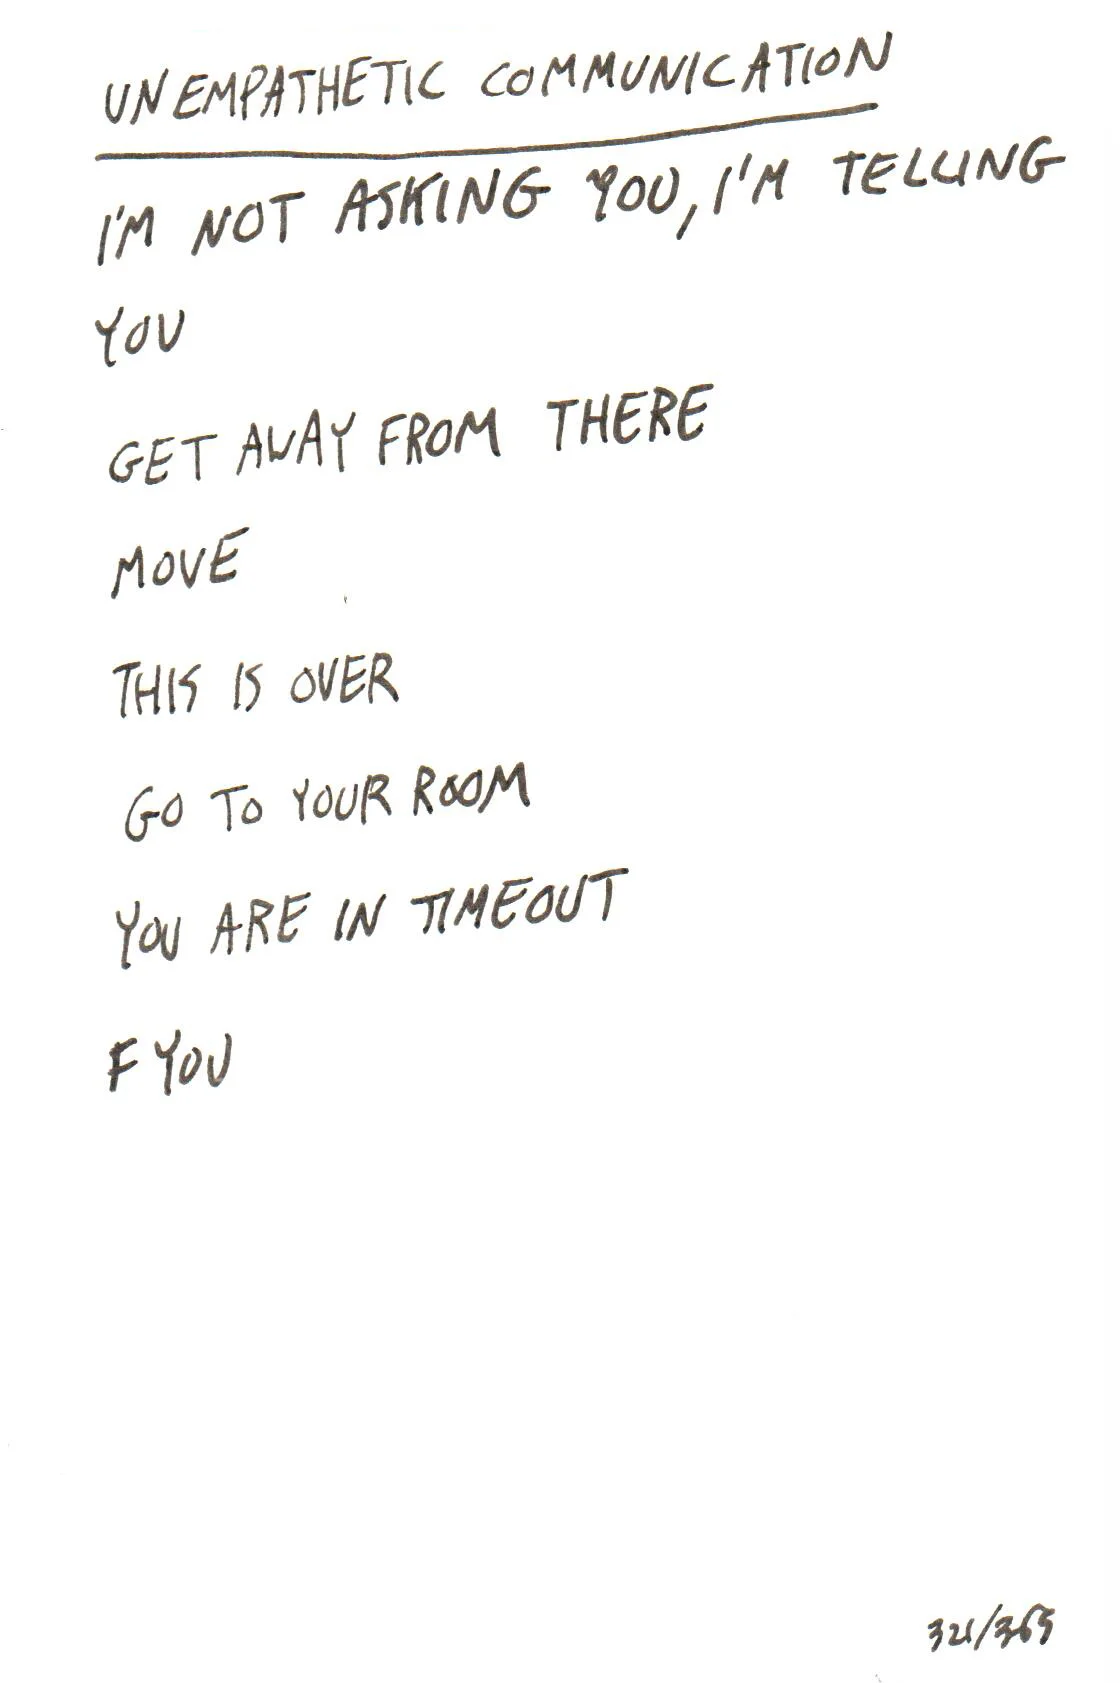 UNEMPATHETIC COMMUNICATION
I'M NOT ASKING YOU, I'M TELLING
YOU
GET AWAY FROM THERE
MOVE
THIS IS OVER
GO TO YOUR ROOM
YOU ARE IN TIMEOUT
F YOU
321/365